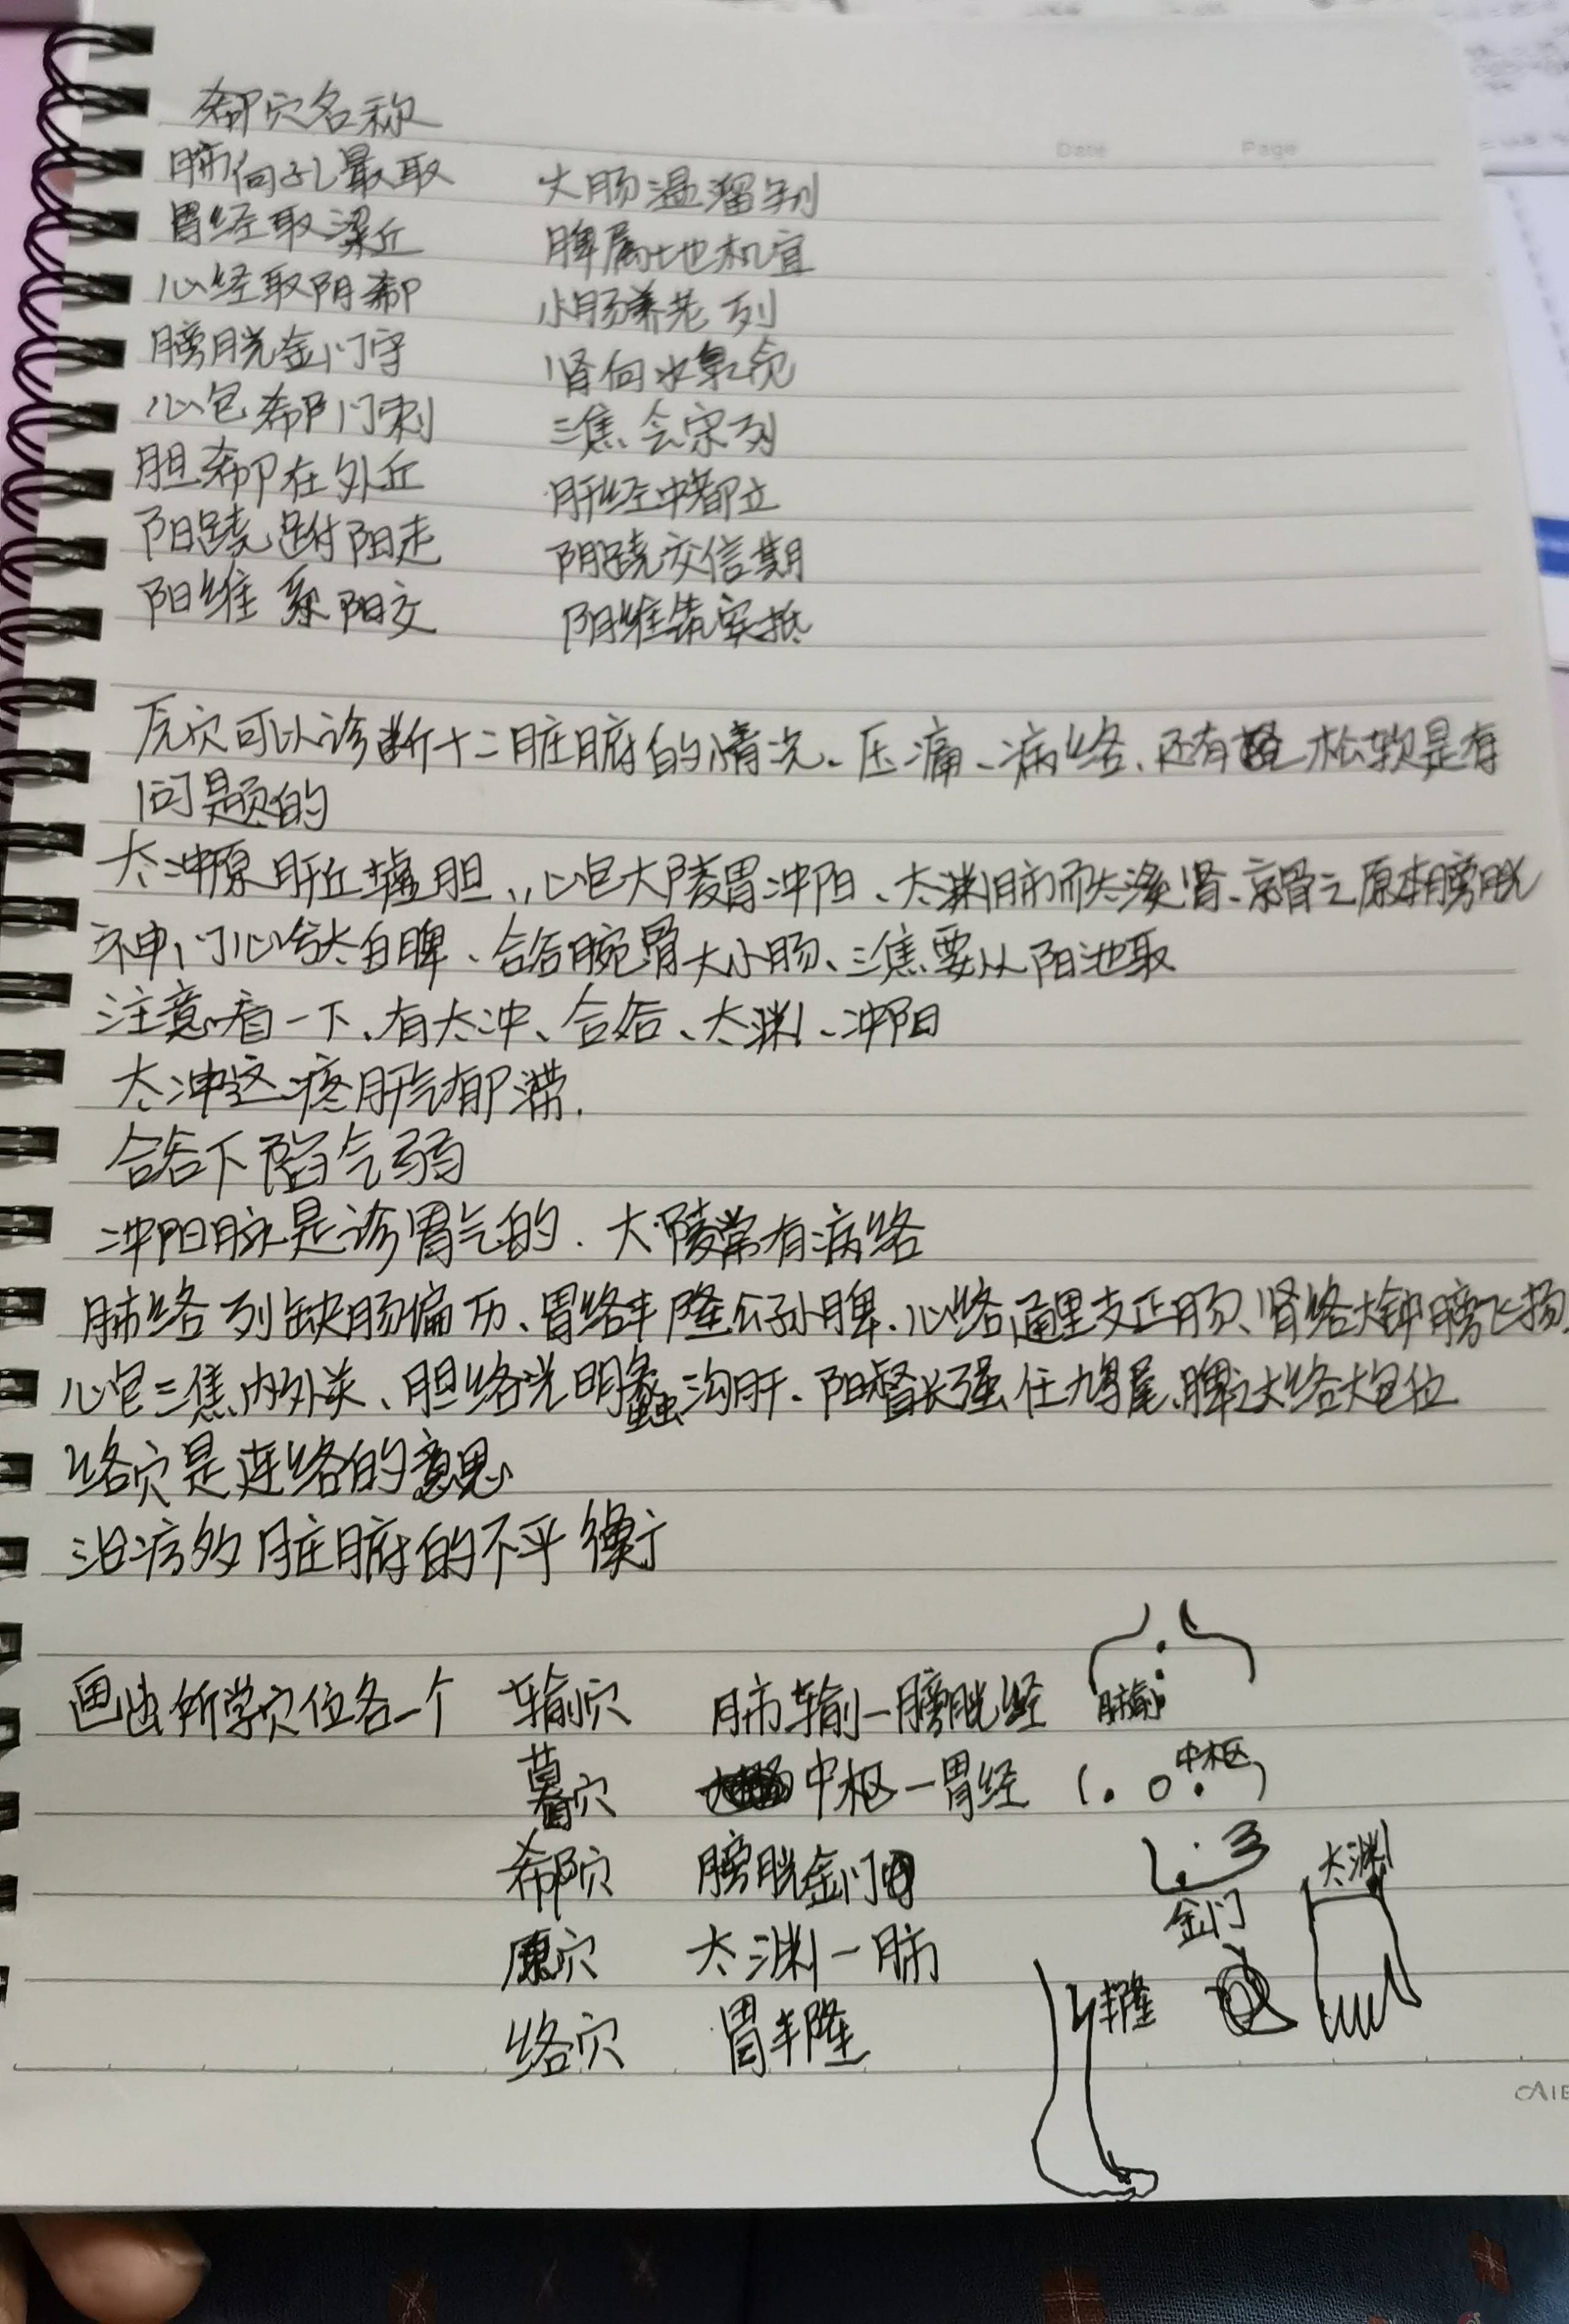 郄穴名称
Date Page
肺向孔最取 大肠温溜别
胃经取梁丘 脾属地机宜
心经取阴郄 小肠养老列
膀胱金门守 肾向水泉
心包郄门刺 三焦会宗列
胆郄在外丘 肝经中都立
阳跷跗阳走 阴跷交信期
阳维系阳交 阴维筑宾抵
原穴可以诊断十二脏腑的情况、压痛、病络、还有 松软是有
问题的
太冲原肝丘墟胆、心包大陵胃冲阳、太渊肺而太溪肾、京骨之原本膀胱
神门心兮太白脾、合谷腕骨大小肠、三焦要从阳池取
注意看一下、有太冲、合谷、太渊、冲阳
太冲这疼肝气郁滞.
合谷下陷气弱
冲阳脉是诊胃气的.大陵常有病络
肺络列缺肠偏历、胃络丰隆公孙脾、心络通里支正肠、肾络大钟膀飞扬、
心包三焦内外关、胆络光明蠡沟肝、阳督长强任鸠尾、脾之大络大包位
络穴是连络的意思
治疗多脏腑的不平衡
画出所学穴位各一个 输穴 肺输—膀胱经 肺输
募穴 中枢—胃经 中枢
郄穴 膀胱金门 金门 太渊
原穴 太渊—肺
络穴 胃丰隆 丰隆